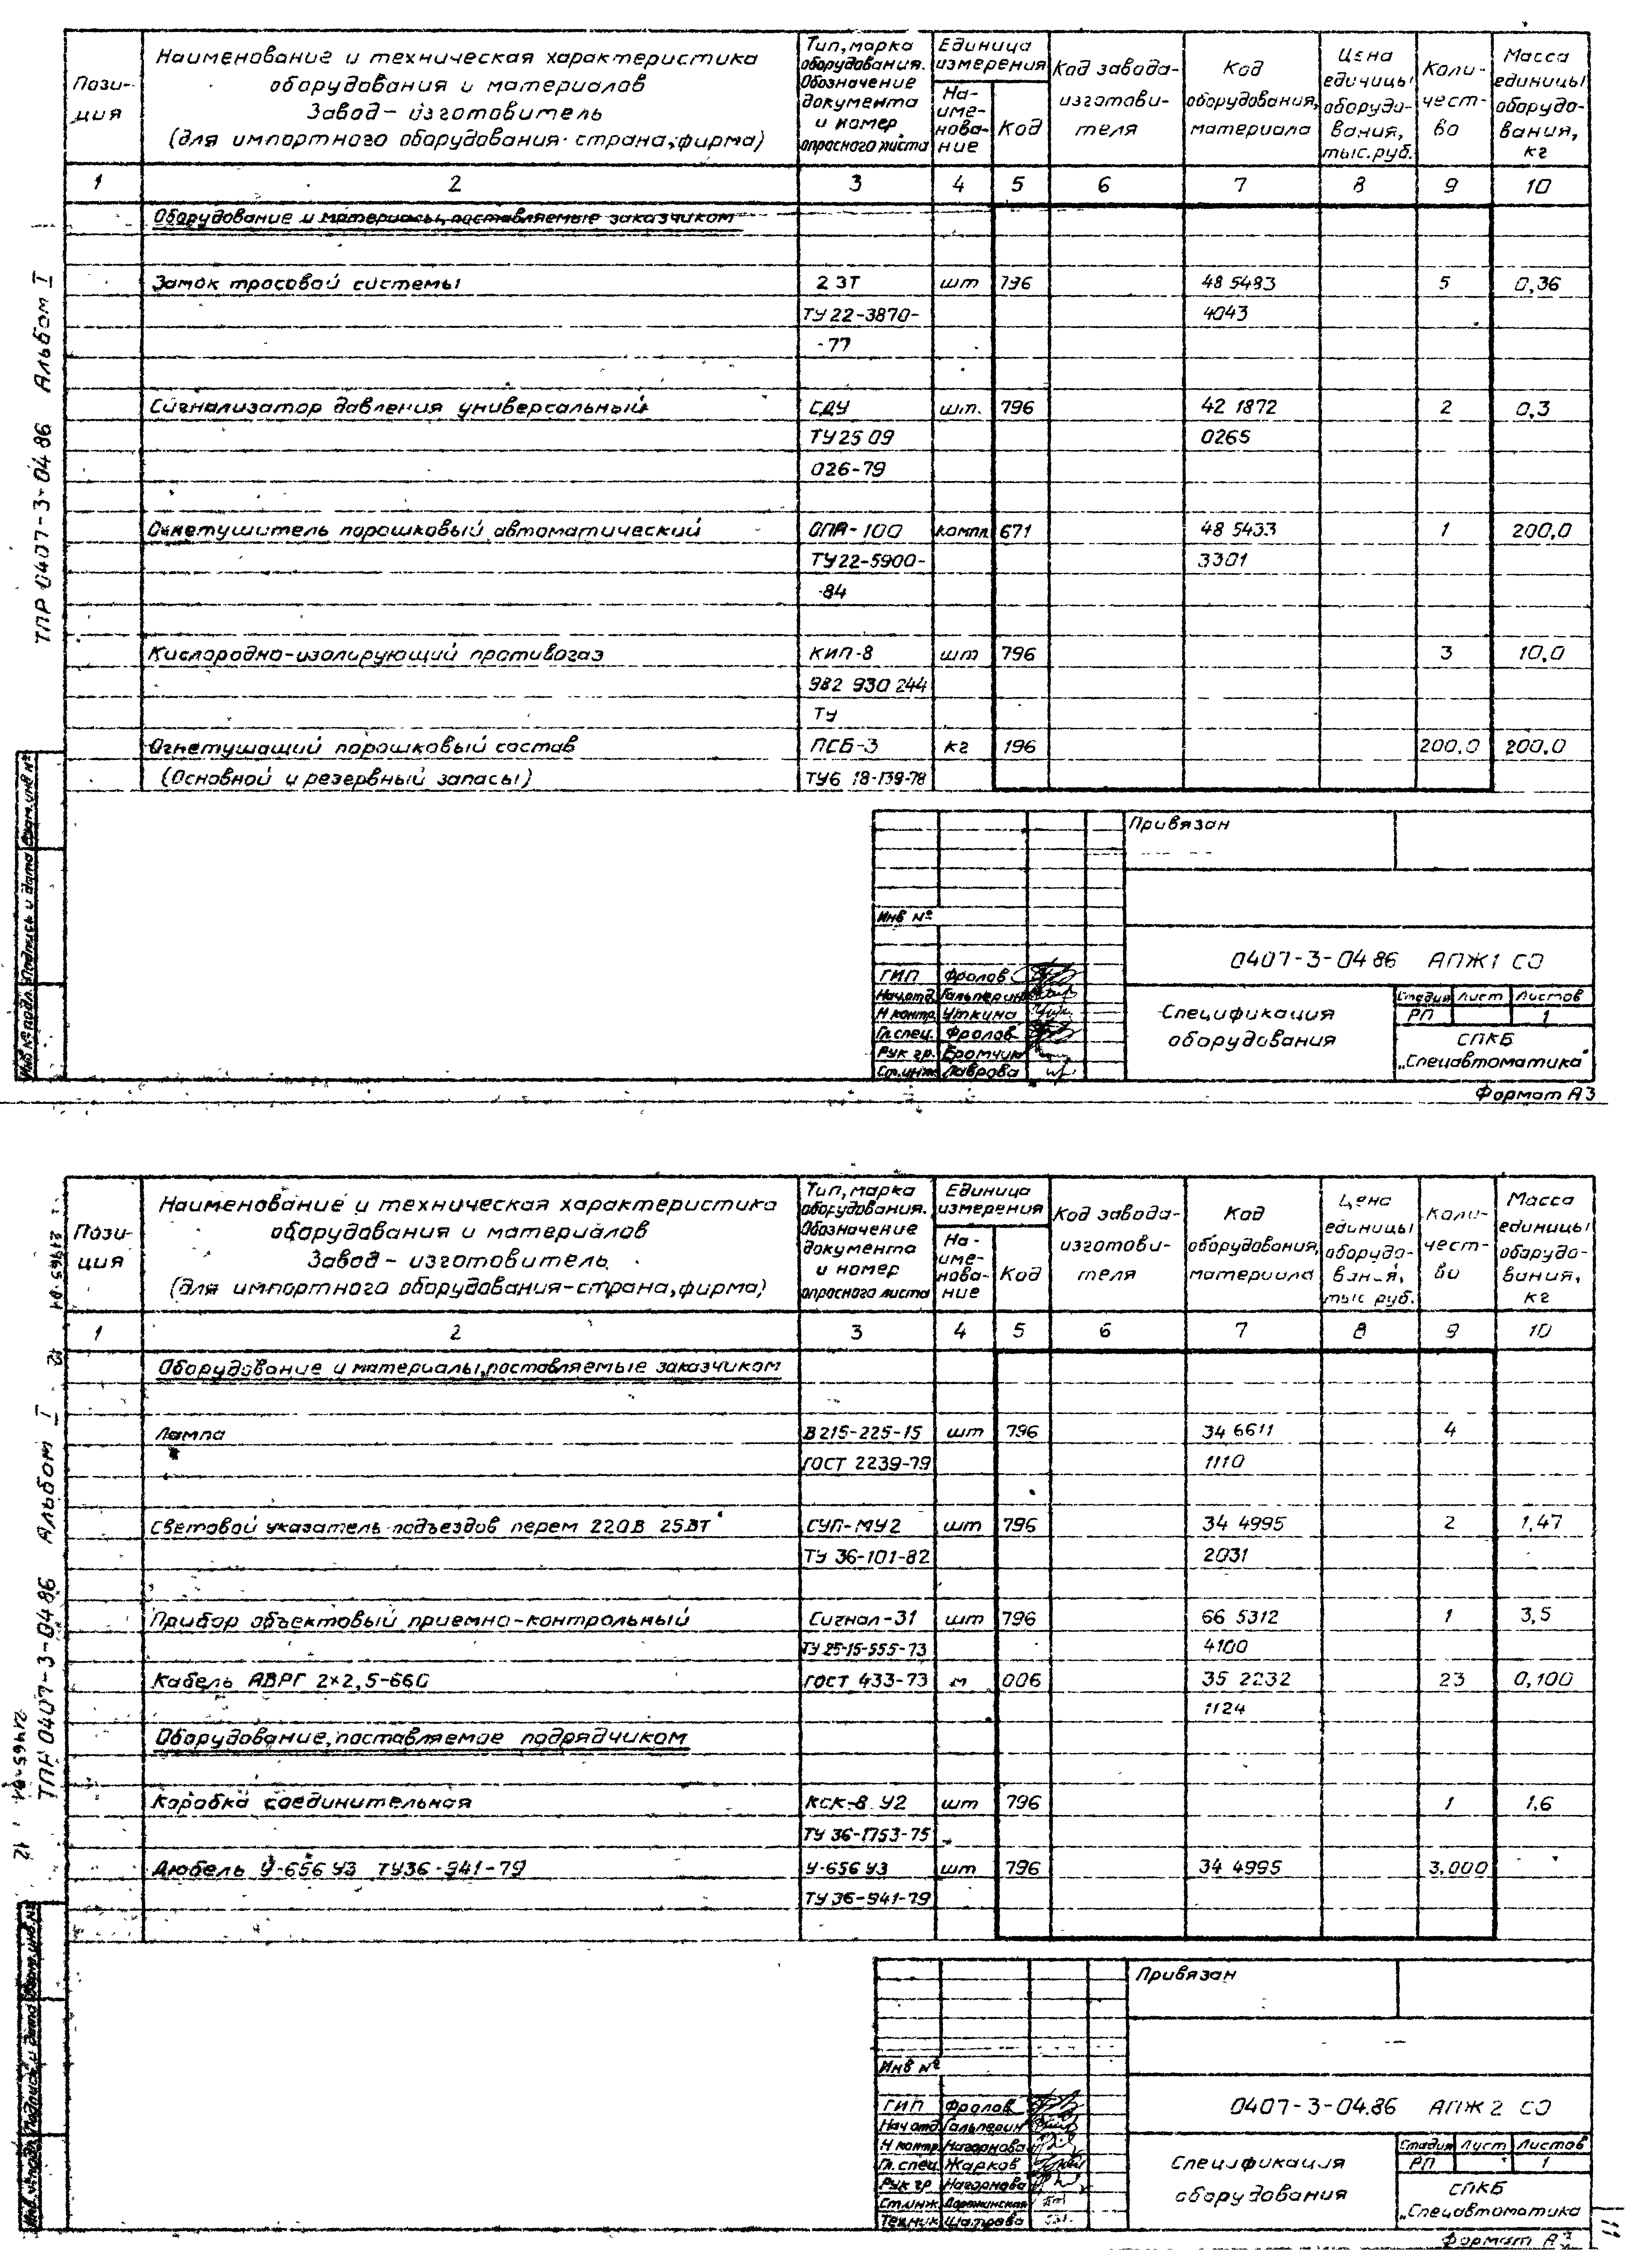 Пози-
ция
Наименование и техническая характеристика
оборудования и материалов
Завод-изготовитель
(для импортного оборудования-страна, фирма)
Тип, марка
оборудования.
Обозначение
документа
и номер
опросного листа
Единица
измерения
На-
име-
нова-
ние
Код
Код завода-
изготови-
теля
Код
оборудования,
материала
Цена
единицы
оборудо-
вания,
тыс.руб.
Коли-
чест-
во
Масса
единицы
оборудо-
вания,
кг
1 2 3 4 5 6 7 8 9 10
Оборудование и материалы, поставляемые заказчиком
Замок тросовой системы 2 ЗТ шт 796 48 5483 5 0,36
ТУ 22-3870- 4043
-77
Сигнализатор давления универсальный СДУ шт. 796 42 1872 2 0,3
ТУ 25 09 0265
026-79
Огнетушитель порошковый автоматический ОПА-100 компл 671 48 5433 1 200,0
ТУ 22-5900- 3301
-84
Кислородно-изолирующий противогаз КИП-8 шт 796 3 10,0
982 930 244
ТУ
Огнетушащий порошковый состав ПСБ-3 кг 196 200,0 200,0
(Основной и резервный запасы) ТУ6 18-139-78
ТПР 0407-3-04 86 Альбом I
Инв № подл. Подпись и дата Взам.инв №
Привязан
Инв №
0407-3-04 86 АПЖ1 СО
ГИП Фролов
Нач.отд. Гальперин
Н контр. Уткина
Гл.спец. Фролов
Рук гр. Еромчик
Ст.инж. Лаврова
Спецификация
оборудования
Стадия Лист Листов
РП 1
СПКБ
„Спецавтоматика"
Формат А3
Пози-
ция
Наименование и техническая характеристика
оборудования и материалов
Завод-изготовитель
(для импортного оборудования-страна, фирма)
Тип, марка
оборудования.
Обозначение
документа
и номер
опросного листа
Единица
измерения
На-
име-
нова-
ние
Код
Код завода-
изготови-
теля
Код
оборудования,
материала
Цена
единицы
оборудо-
вания,
тыс руб.
Коли-
чест-
во
Масса
единицы
оборудо-
вания,
кг
1 2 3 4 5 6 7 8 9 10
Оборудование и материалы, поставляемые заказчиком
Лампа В 215-225-15 шт 796 34 6611 4
ГОСТ 2239-79 1110
Световой указатель подъездов перем 220В 25ВТ СУП-МУ2 шт 796 34 4995 2 1,47
ТУ 36-101-82 2031
Прибор объектовый приемно-контрольный Сигнал-31 шт 796 66 5312 1 3,5
ТУ 25-15-555-73 4100
Кабель АВРГ 2×2,5-660 ГОСТ 433-73 м 006 35 2232 23 0,100
1124
Оборудование, поставляемое подрядчиком
Коробка соединительная КСК-8 У2 шт 796 1 1,6
ТУ 36-1753-75
Дюбель У-656 У3 ТУ36-941-79 У-656 У3 шт 796 34 4995 3,000
ТУ 36-941-79
21465-01 12
ТПР 0407-3-04 86 Альбом I
21465-01 12
Инв. № подл. Подпись и дата Взам.инв.№
Привязан
Инв №
0407-3-04.86 АПЖ 2 СО
ГИП Фролов
Нач отд. Гальперин
Н контр. Нагорнова
Гл. спец. Жарков
Рук гр Нагорнова
Ст.инж.
Техник Шатрова
Спецификация
оборудования
Стадия Лист Листов
РП 1
СПКБ
„Спецавтоматика
Формат А3
11